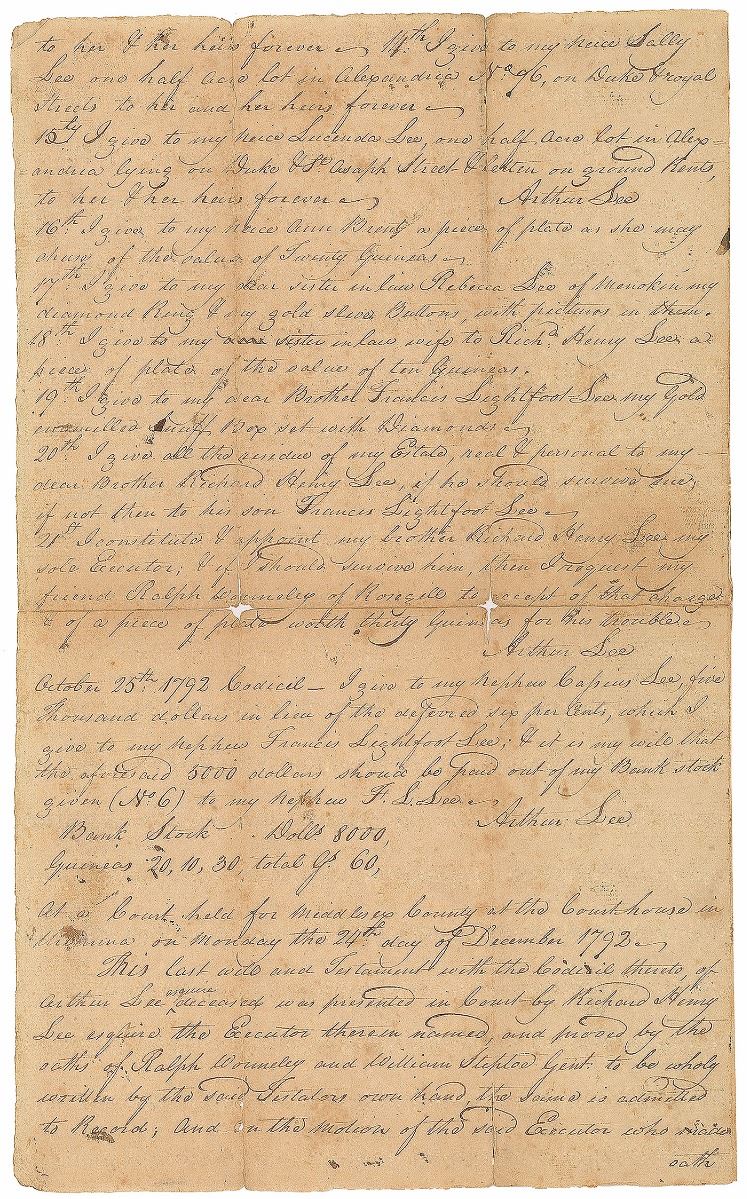 to her & her heirs forever 14th I give to my Neice Sally
Lee one half acre lot in Alexandria No 96, on Duke & royal
Streets to her and her heirs forever
15ty I give to my Neice Lucinda Lee, one half Acre lot in Alex=
=andria lying on Duke & St Asaph Street & letten on ground Rents,
to her & her heirs forever Arthur Lee
16th I give to my Neice Ann Brent a piece of plate as she may
chuse of the value of Twenty Guineas
17th I give to my dear sister in law Rebecca Lee of Menokin my
diamond Ring & my gold sleve Buttons, with pictures in them.
18th I give to my dear sister in law wife to Richd Henry Lee a
piece of plate of the value of ten Guineas.
19th I give to my dear Brother Francis Lightfoot Lee my Gold
Snuff Box set with Diamonds
20th I give all the residue of my Estate, real & personal to my
dear Brother Richard Henry Lee, if he should survive me;
if not then to his son Francis Lightfoot Lee
21st I constitute & appoint my brother Richard Henry Lee my
sole Executor; & if I should survive him, then I request my
friend Ralph Wormeley of Rosegill to accept of that charge
& of a piece of plate worth thirty Guineas for his trouble
Arthur Lee
October 25th 1792 Codicil — I give to my Nephew Cassius Lee, five
Thousand dollars in lieu of the deferred six per Cents, which I
give to my Nephew Francis Lightfoot Lee; & it is my will that
the aforesaid 5000 dollars should be paid out of my Bank stock
given (No 6) to my Nephew F. L. Lee
Arthur Lee
Bank Stock Dolls 8000,
Guineas 20, 10, 30, total Gs 60,
At a Court held for Middlesex County at the Courthouse in
Urbanna on Monday the 24th day of December 1792
This last will and Testament with the Codicil thereto, of
Arthur Lee esquire deceased was presented in Court by Richard Henry
Lee esquire the Executor therein named, and proved by the
oaths of Ralph Wormeley and William Steptoe Gent. to be wholy
written by the said Testators own hand, the same is admitted
to Record; And on the motion of the said Executor who made
oath